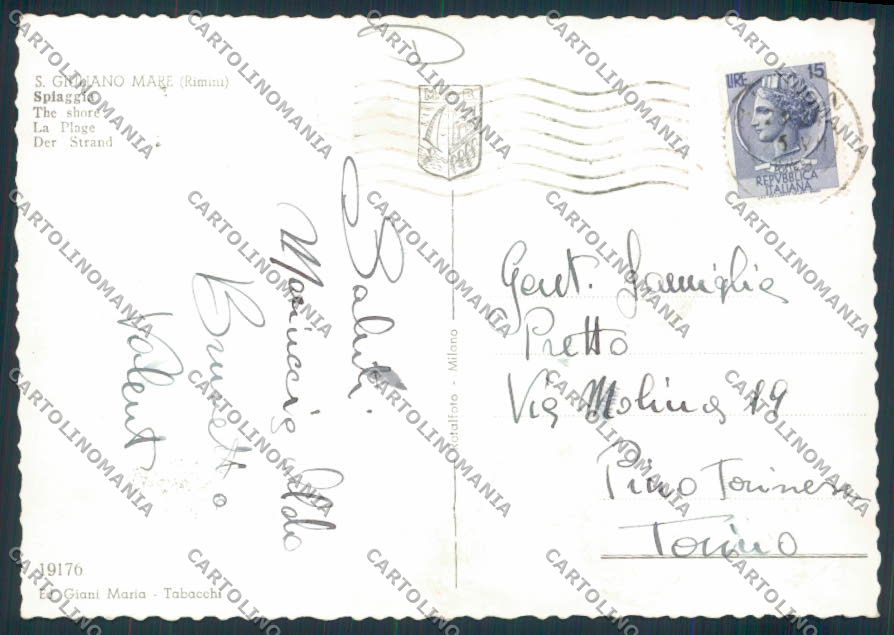 S. GIULIANO MARE (Rimini)
Spiaggia
The shore
La Plage
Der Strand
LIRE 15
POSTE
REPVBBLICA
ITALIANA
Saluti
Mariuccia Aldo
Brunetto
Valent
Gent. Famiglia
Pretto
Via Molina 19
Pino Torinese
Torino
Rotalfoto - Milano
19176
Ed. Giani Maria - Tabacchi
CARTOLINOMANIA